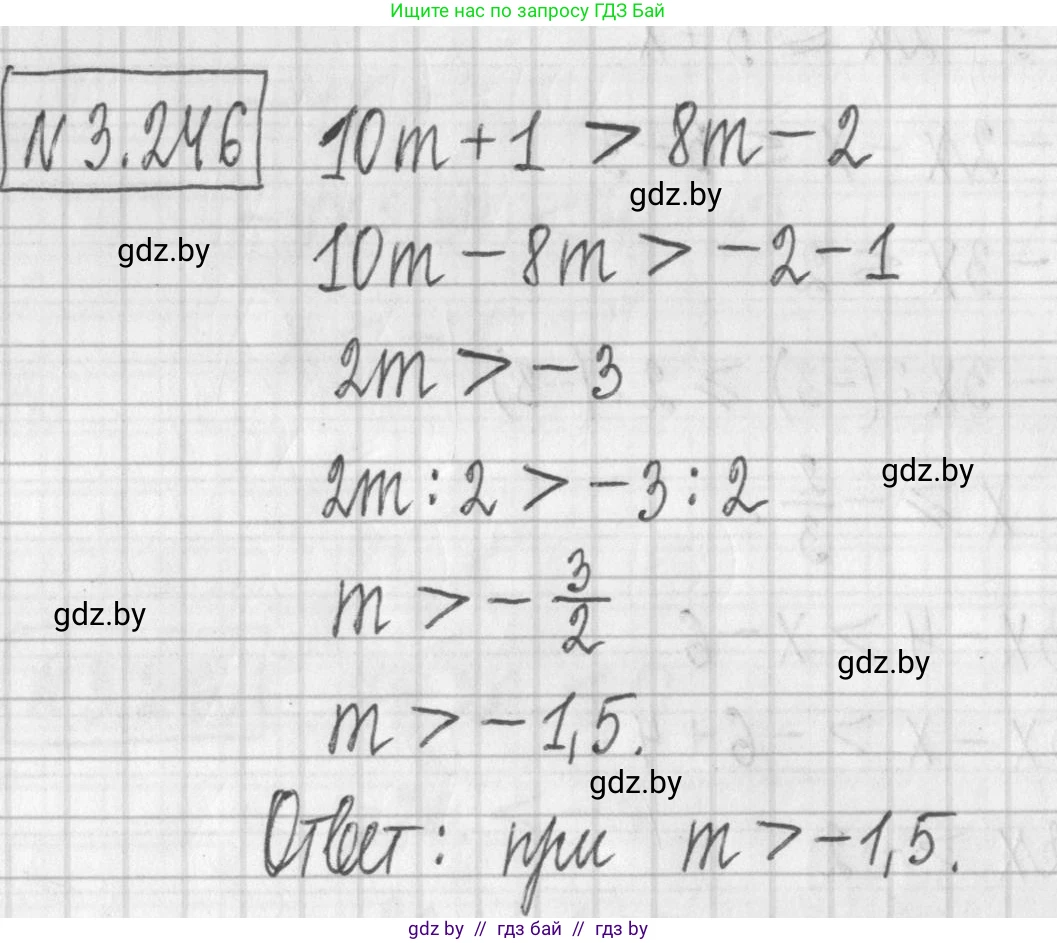 Ищите нас по запросу ГДЗ Бай
N 3.246 10m + 1 > 8m - 2
gdz.by
gdz.by
10m - 8m > -2 - 1
2m > -3
2m : 2 > -3 : 2
gdz.by
m > - 3/2
gdz.by
gdz.by
m > -1,5.
gdz.by
Ответ: при m > -1,5.
gdz by // гдз бай // гдз by